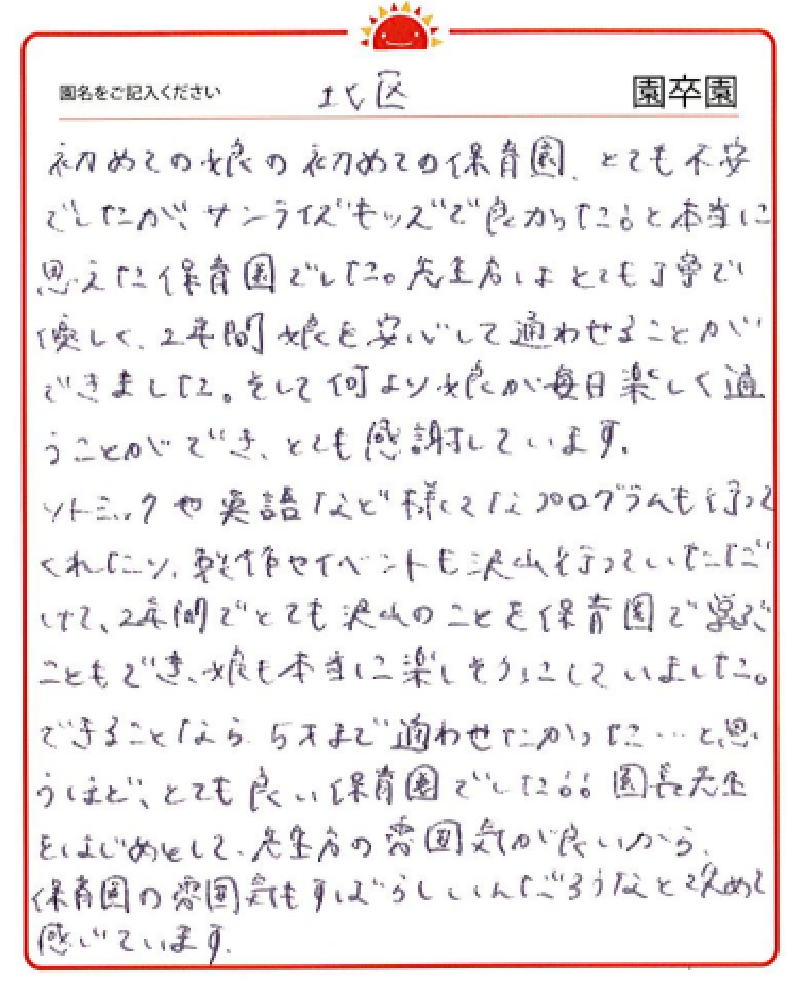 園名をご記入ください 北区 園卒園
初めての娘の初めての保育園、とても不安
でしたが、サンライズキッズで良かった!!と本当に
思えた保育園でした。先生方はとても丁寧で
優しく、2年間娘を安心して通わせることが
できました。そして何より娘が毎日楽しく通
うことができ、とても感謝しています。
リトミックや英語など様々なプログラムも行って
くれたり、製作やイベントも沢山行っていただ
けて、2年間でとても沢山のことを保育園で学ぶ
こともでき、娘も本当に楽しそうにしていました。
できることなら、5才まで通わせたかった…と思
うほど、とても良い保育園でした!! 園長先生
をはじめとして、先生方の雰囲気が良いから、
保育園の雰囲気もすばらしいんだろうなと改めて
感じています。